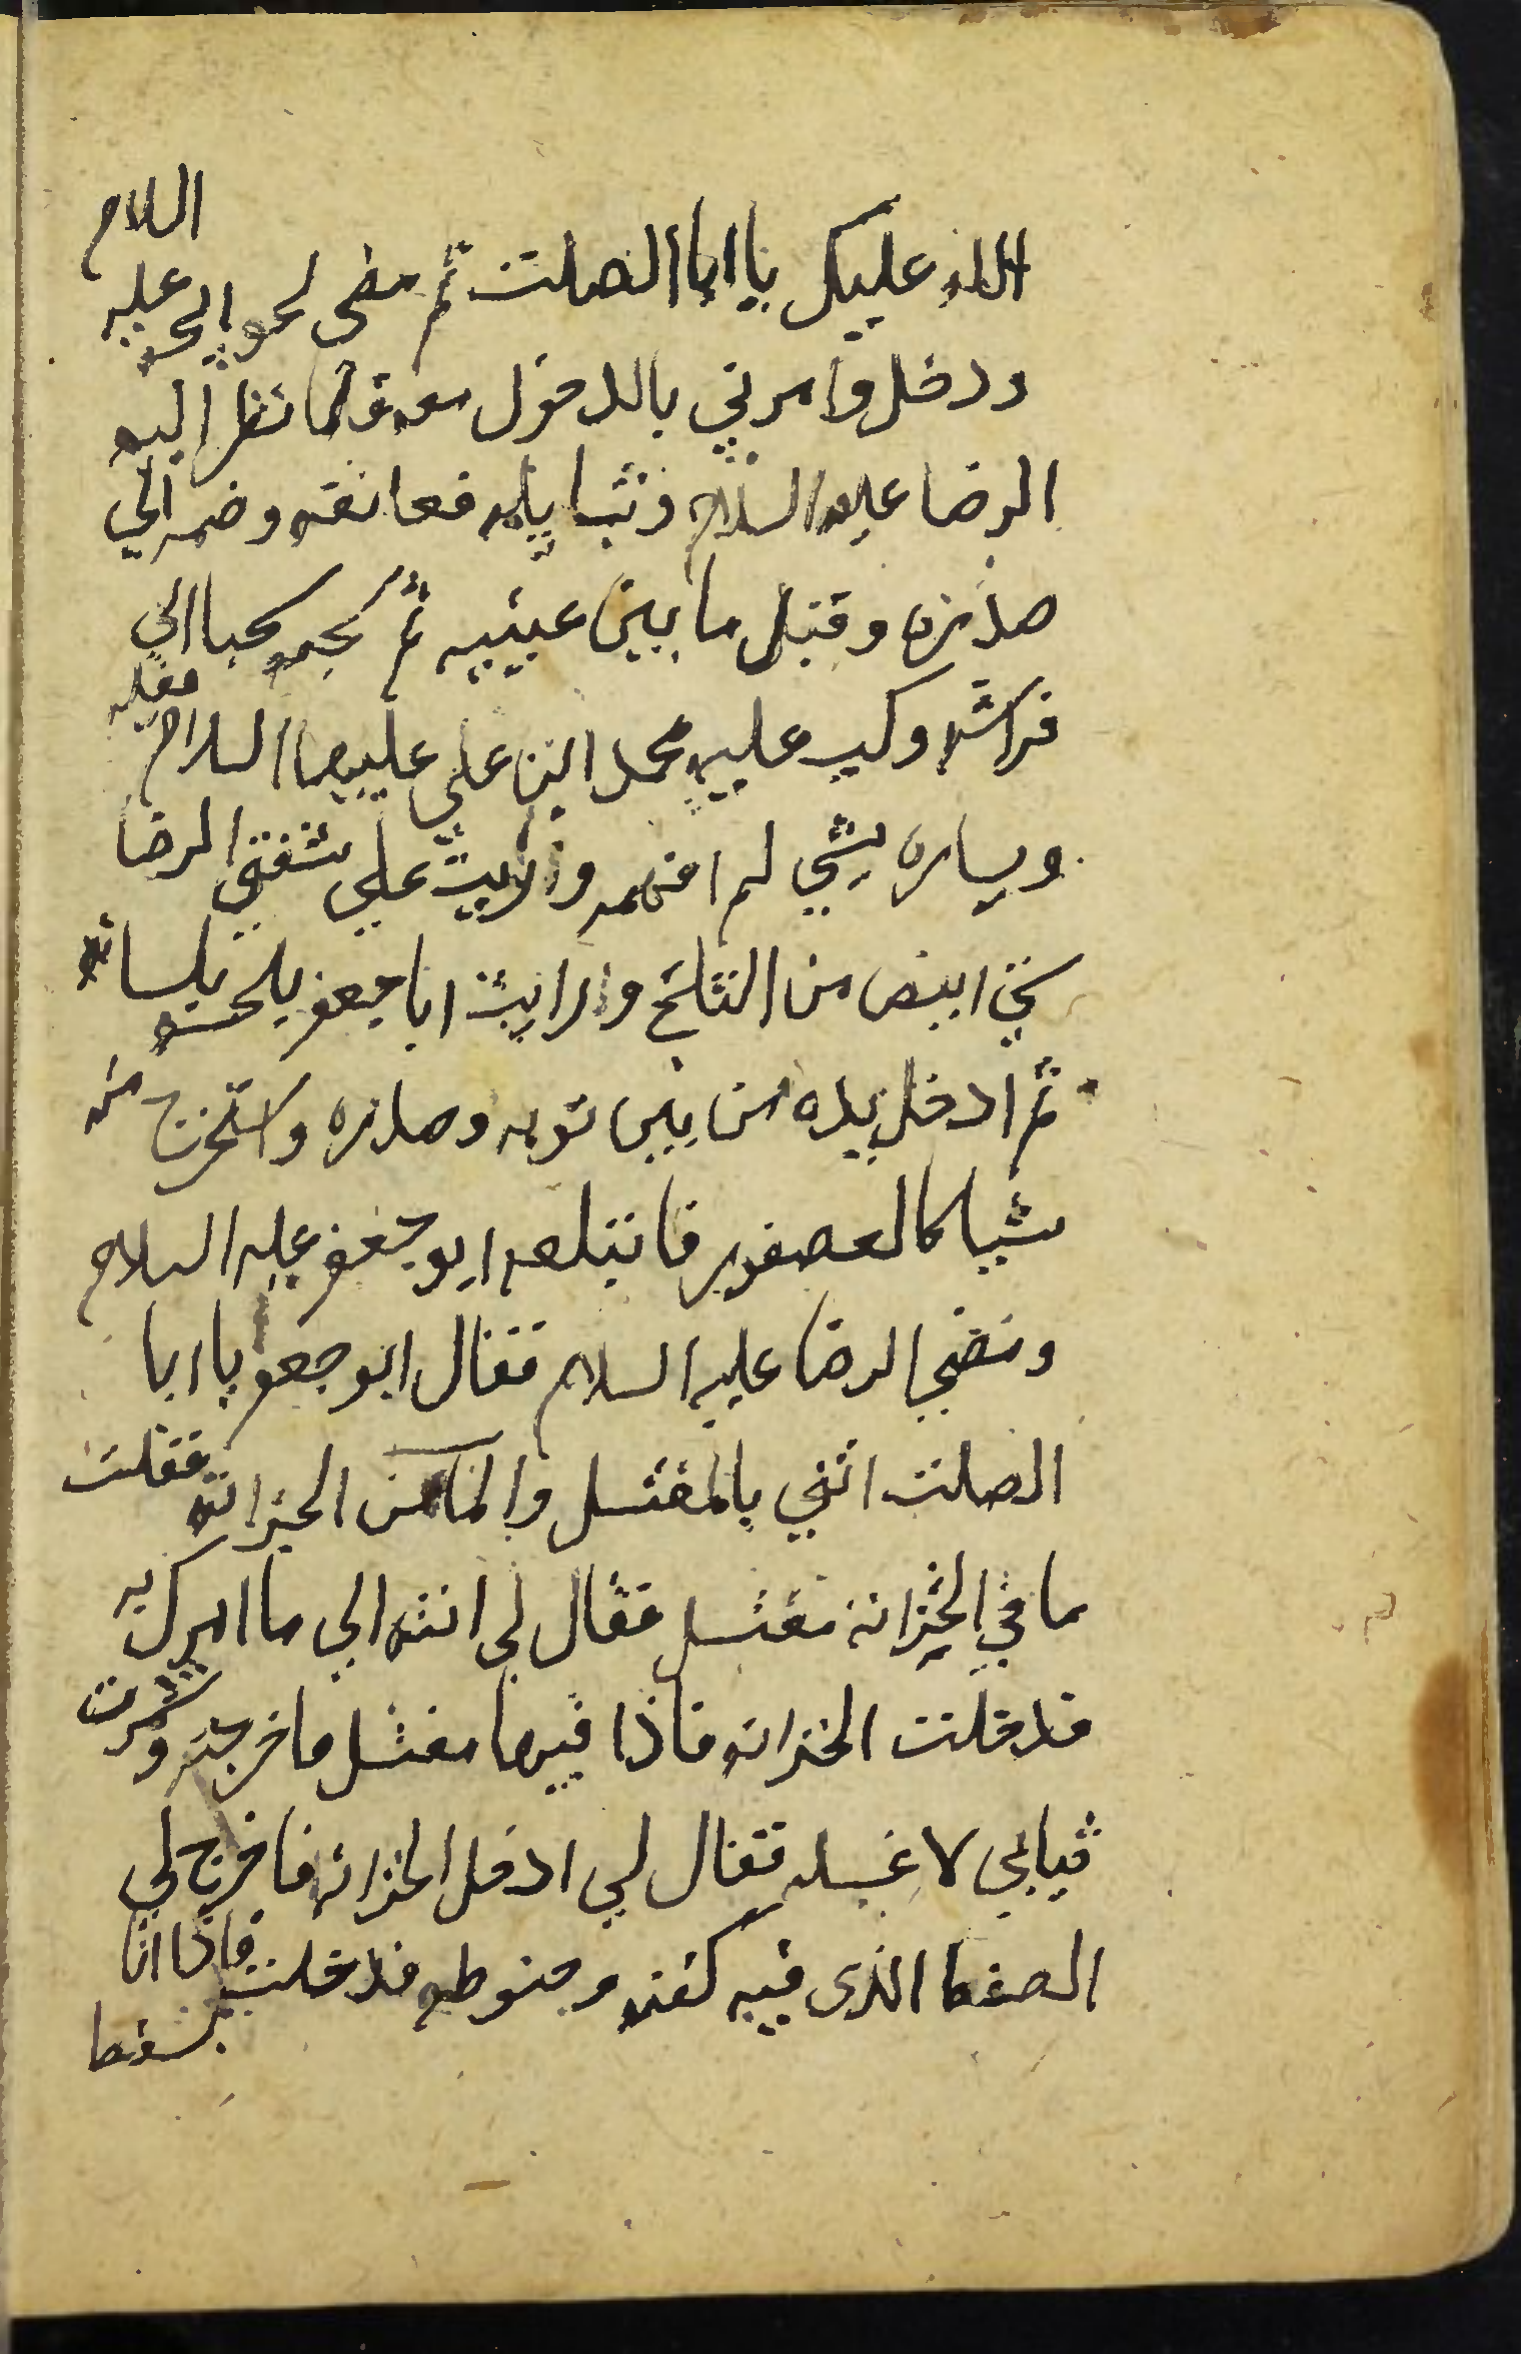 الله عليك يا ابا الصلت ثم مضى نحو ابي الحسن عليه السلام
ودخل وامرني بالدخول معه فلما نظر اليه
الرضا عليه السلام وثب اليه فعانقه وضمه الي
صدره وقبل ما بين عينيه ثم سحبه سحبا الى
فراشه وكب عليه محمد ابن علي عليهما السلام فقبله
ويساره بشي لم افهمه ورايت علي شفتي الرضا
شي ابيض من الثلج ورايت ابا جعفر يلحسه بلسانه
ثم ادخل يده من بين ثوبه وصدره واستخرج منه
شيا كالعصفور فابتلعه ابو جعفر عليه السلام
ومضى الرضا عليه السلام فقال ابو جعفر يا ابا
الصلت اتني بالمغتسل والما من الخزانه فقلت
ما في الخزانه مغتسل فقال لي انته الي ما امرك به
فدخلت الخزانه فاذا فيها مغتسل فاخرجته وشمرت
ثيابي لاغسله فقال لي ادخل الخزانه فاخرج لي
الصفط الذي فيه كفنه وحنوطه فدخلت فاذا انا
بسفط